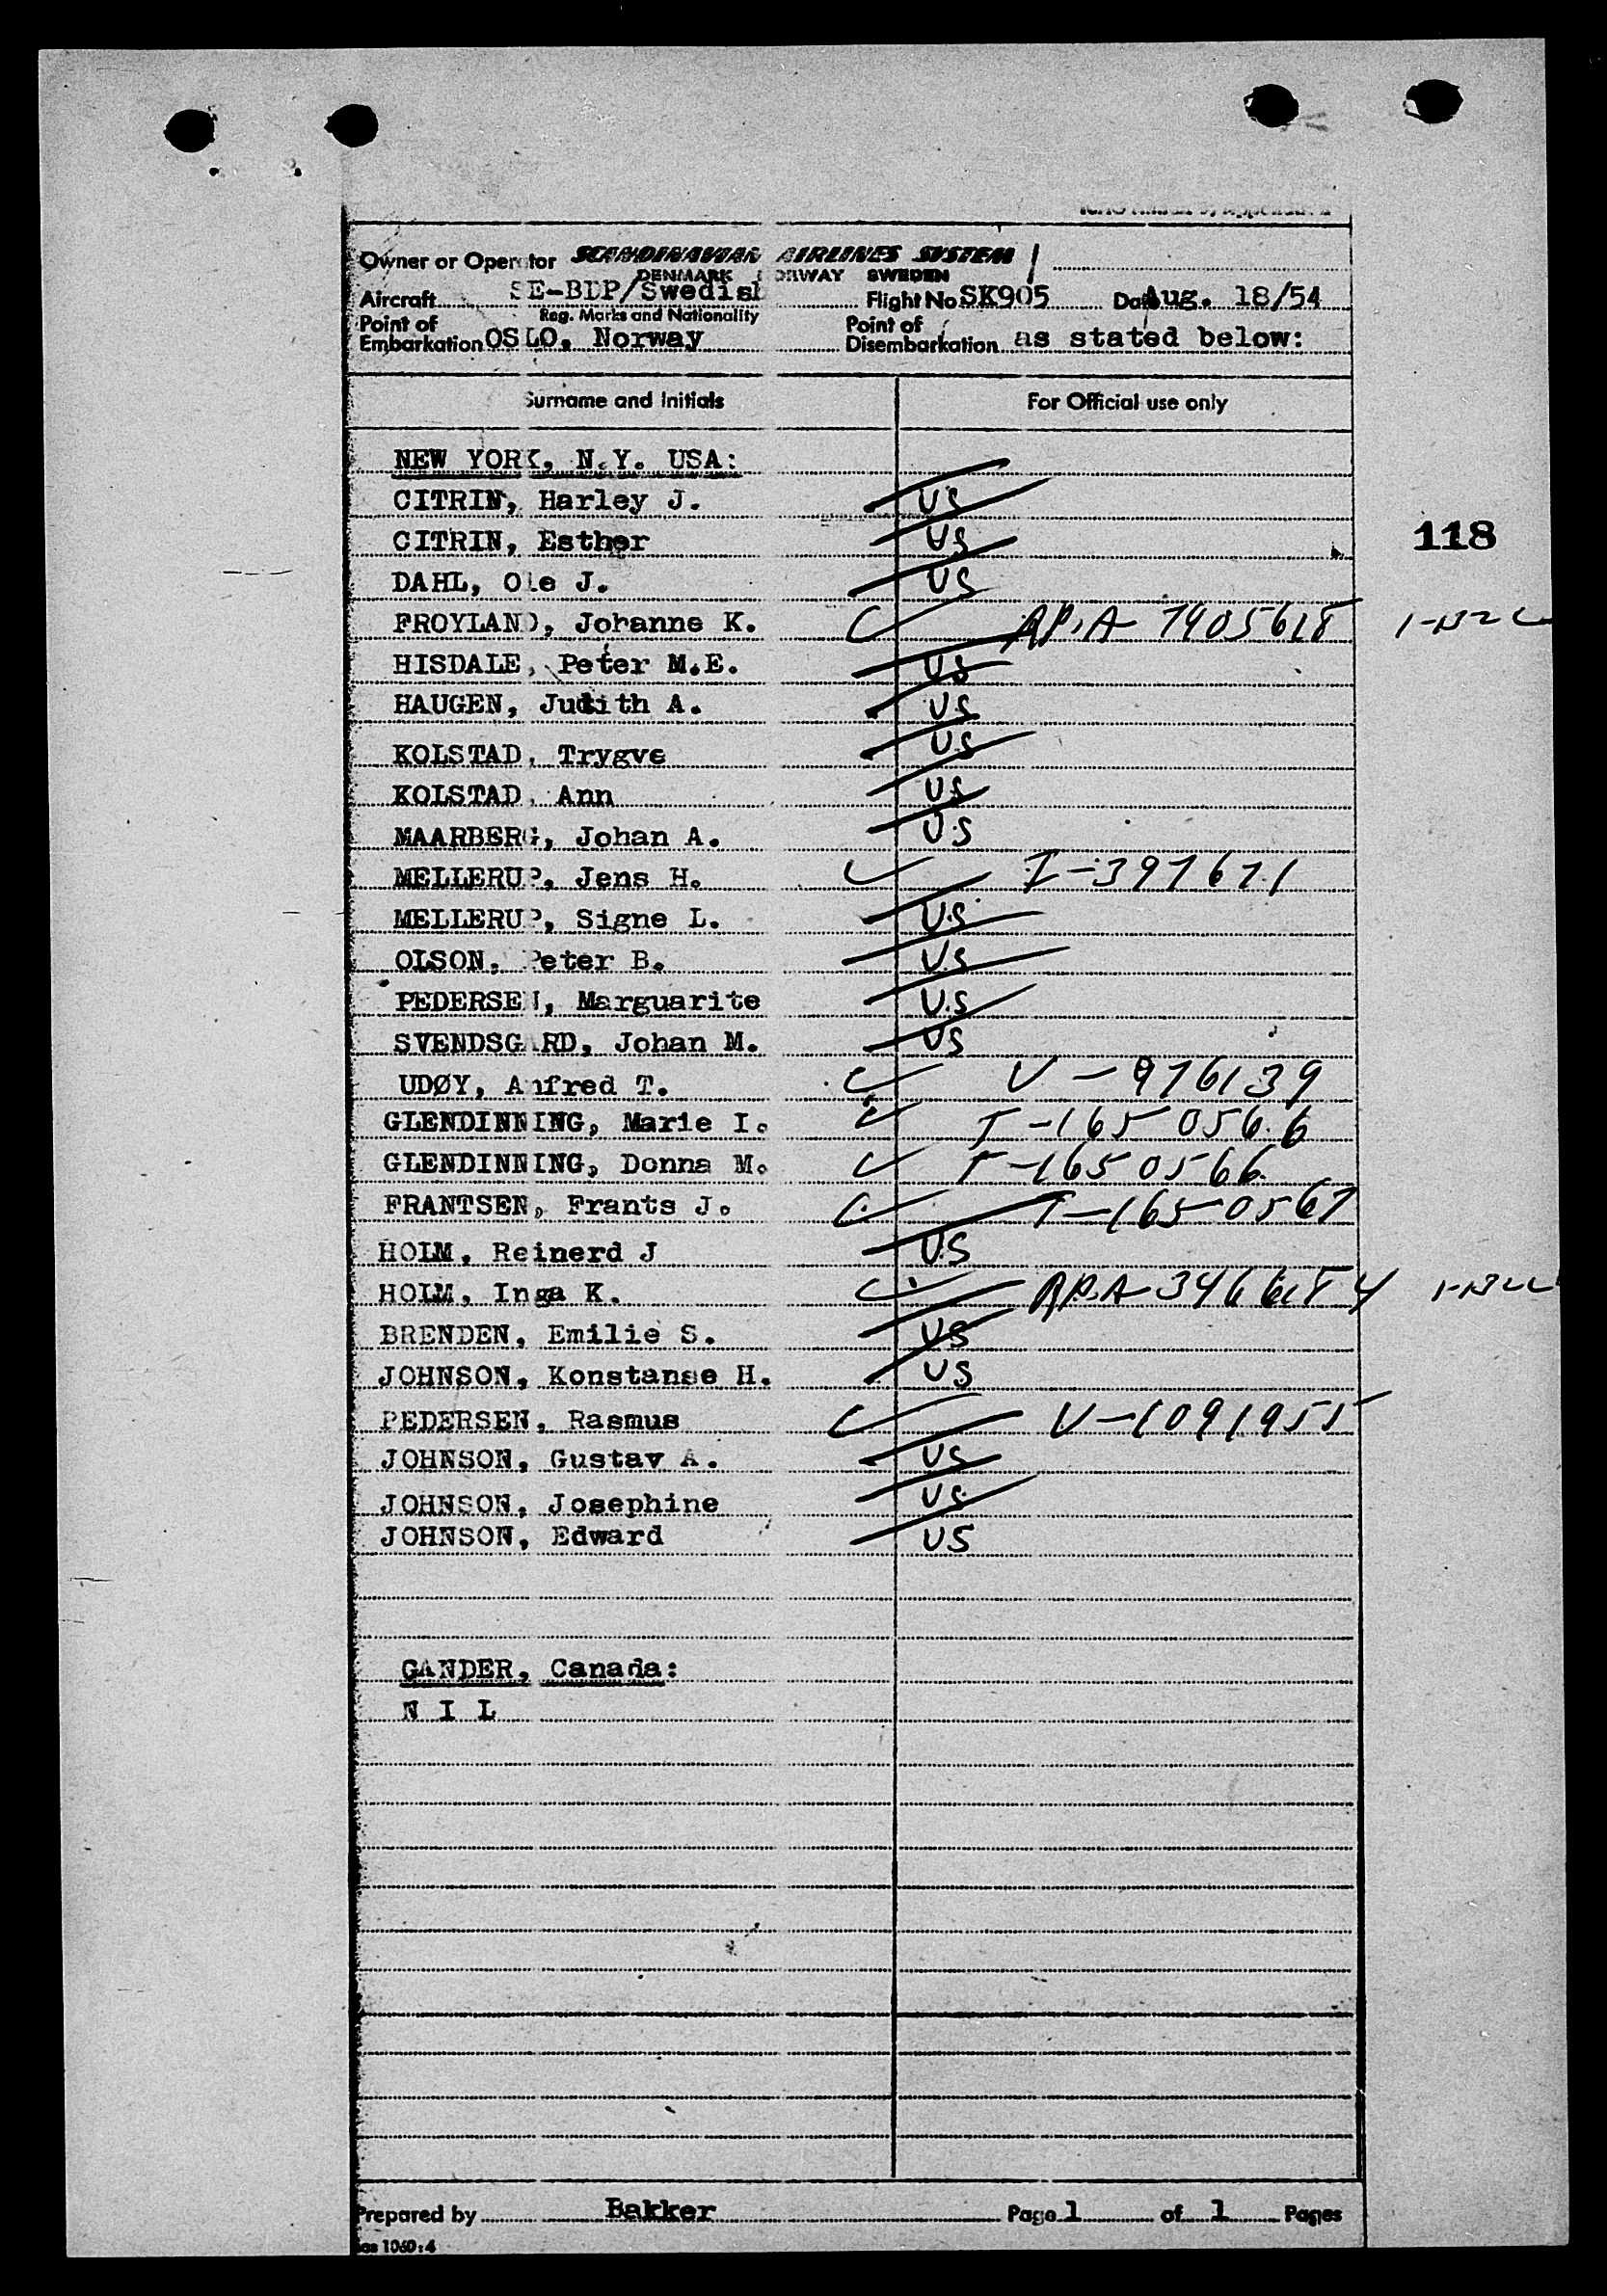 Owner or Operator SCANDINAVIAN AIRLINES SYSTEM
DENMARK NORWAY SWEDEN
Aircraft SE-BDP/Swedish Flight No SK905 Date Aug. 18/54
Reg. Marks and Nationality
Point of Embarkation OSLO, Norway Point of Disembarkation as stated below:
Surname and Initials For Official use only
NEW YORK, N.Y. USA:
CITRIN, Harley J. US
CITRIN, Esther US
118
DAHL, Ole J. US
FROYLAND, Johanne K. A7405618
HISDALE, Peter M.E. US
HAUGEN, Judith A. US
KOLSTAD, Trygve US
KOLSTAD, Ann US
MAARBERG, Johan A. U.S
MELLERUP, Jens H. I-397671
MELLERUP, Signe L. U.S
OLSON, Peter B. U.S
PEDERSEN, Marguarite U.S
SVENDSGARD, Johan M. US
UDØY, Anfred T. V-976139
GLENDINNING, Marie I. T-1650566
GLENDINNING, Donna M. T-1650566
FRANTSEN, Frants J. T-1650567
HOLM, Reinerd J U.S
HOLM, Inga K.
BRENDEN, Emilie S. US
JOHNSON, Konstanse H. US
PEDERSEN, Rasmus V-1091955
JOHNSON, Gustav A. US
JOHNSON, Josephine US
JOHNSON, Edward US
GANDER, Canada:
N I L
Prepared by Bakker Page 1 of 1 Pages
sas 1060:4